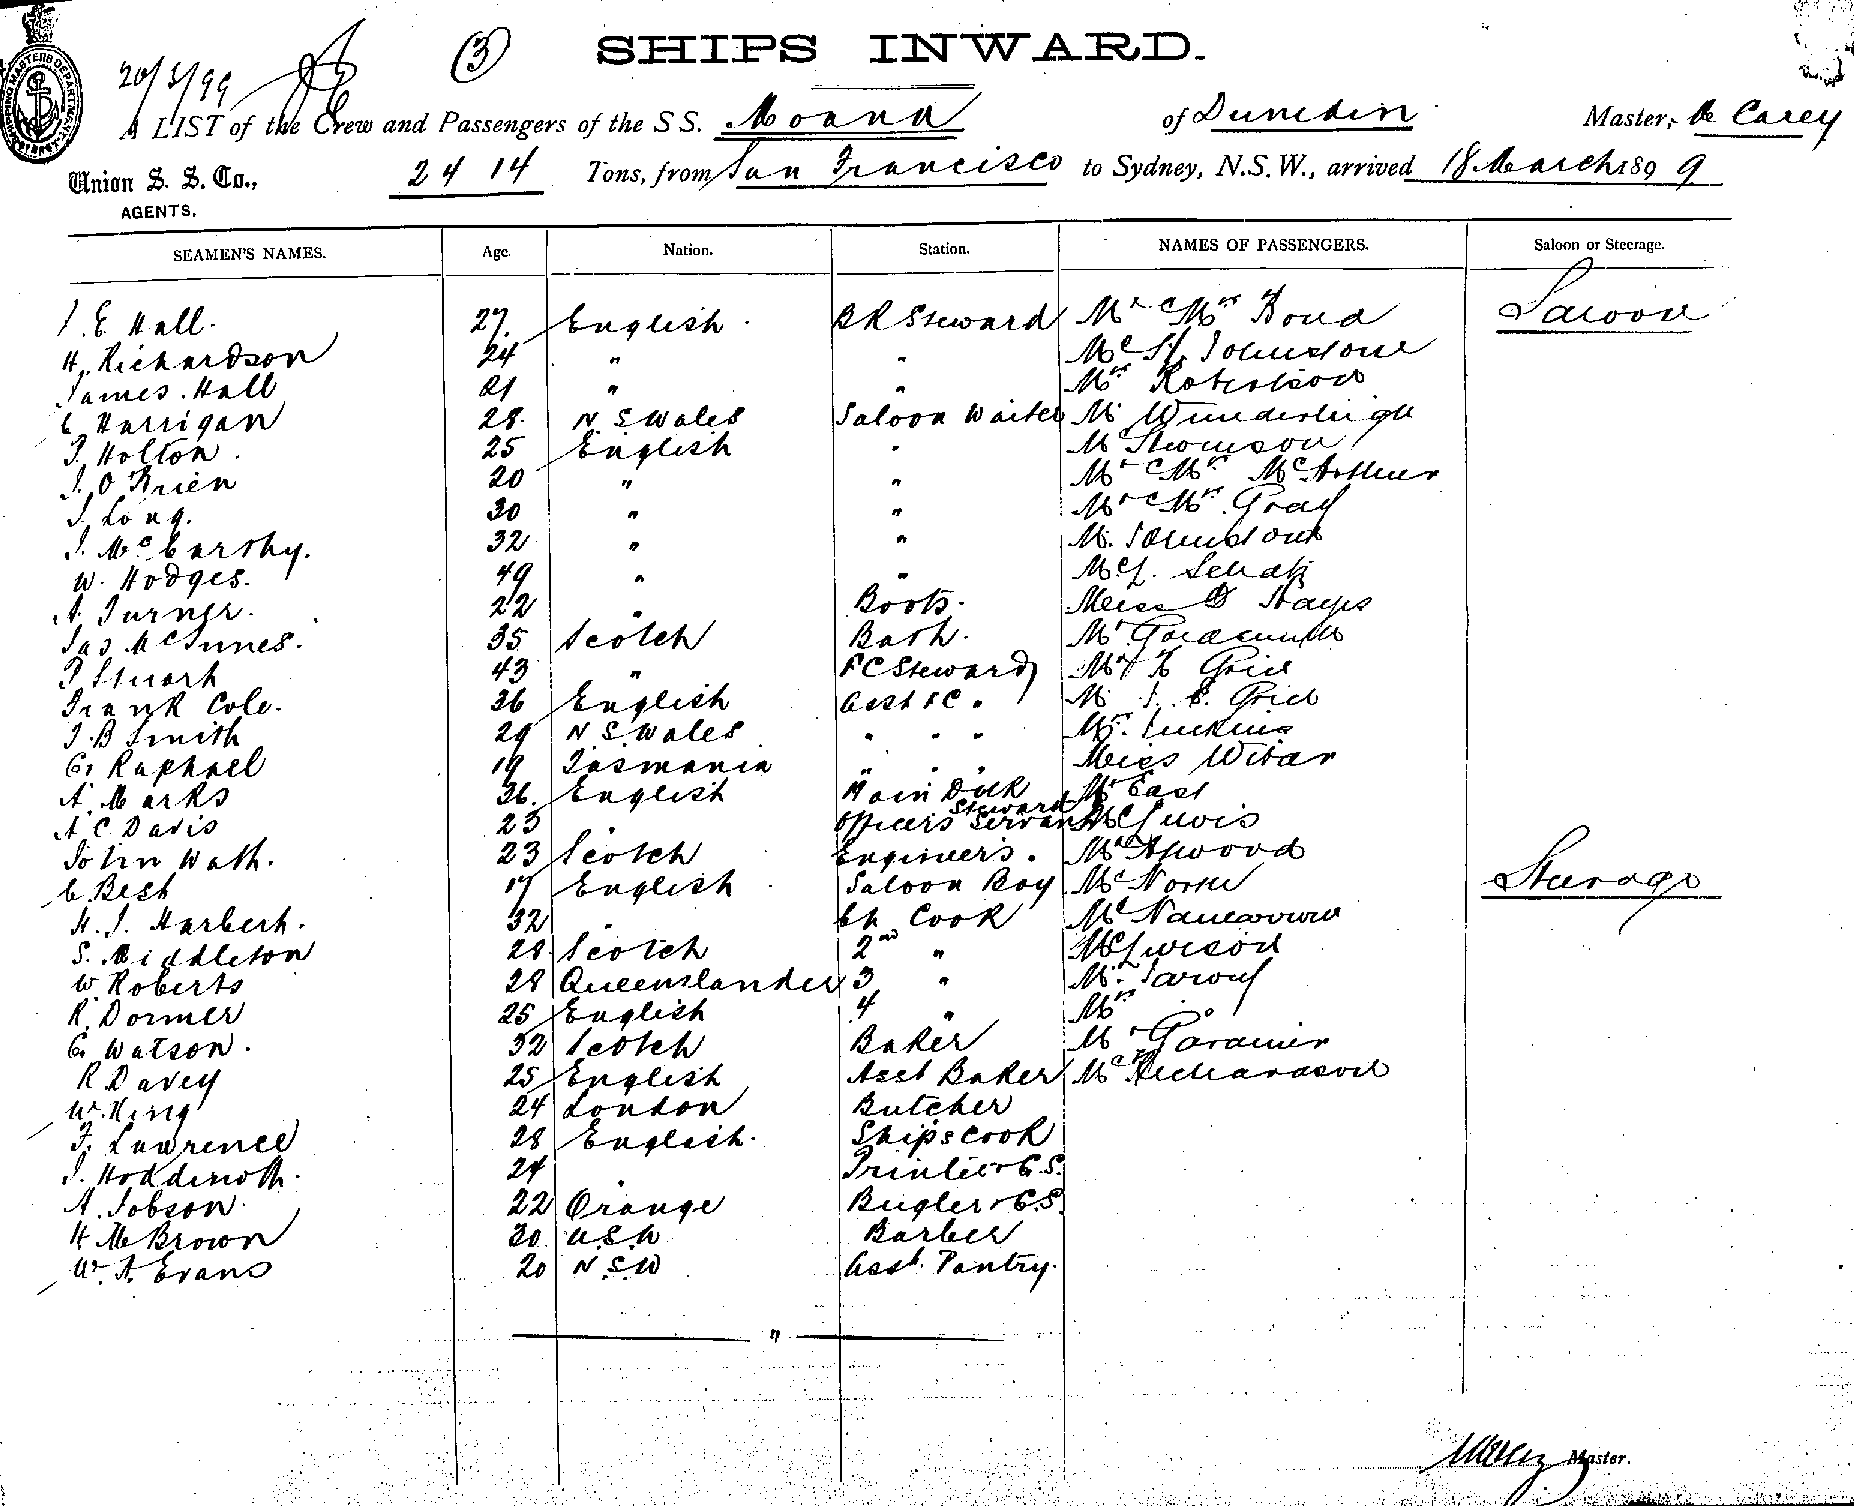 20/3/99
(3)
SHIPS INWARD.
A LIST of the Crew and Passengers of the S S. Moana of Dunedin Master, Carey
Union S. S. Co., 2414 Tons, from San Francisco to Sydney, N.S.W., arrived 18 March 1899
AGENTS.
SEAMEN'S NAMES. Age. Nation. Station. NAMES OF PASSENGERS. Saloon or Steerage.
E Hall. 27. English. B R Steward Mr & Mrs Bond Saloon
H. Richardson 24 " " Johnstone
James Hall 21 " " Mrs Robertson
C Harrigan 28. N. S Wales Saloon Waiter Mr Wunderleigh
Holton. 25 English " Mr Thomson
J. O Brien 20 " " Mr & Mrs McArthur
J. Long. 30 " " Mr & Mrs Gray
J. McCarthy. 32 " " Mr. Johnstone
W. Hodges. 49 " "
A. Turner. 22 " Boots. Miss Hayes
Jas McInnes. 35 Scotch Bath. Mr
P Stuart 43 " F C Steward Mr Grice
Frank Cole. 36 English Asst F C " Mr Grice
J. B Smith 29 N S. Wales " " " Jenkins
G. Raphael 19 Tasmania " " " Miss
A. Marks 36. English Main Deck Steward Mr East
A. C Davis 23 " Officers Servant Lewis
John Watt. 23 Scotch Engineers " Atwood
C Best 17 English Saloon Boy Steerage
H. J. Harbert. 32 " Ch Cook
S. Middleton 28. Scotch 2nd "
W. Roberts 28 Queenslander 3 "
R. Dormer 25 English 4 " Mrs "
G. Watson. 32 Scotch Baker Mr Gardiner
R Davey 25 English Asst Baker Richardson
W. King 24 London Butcher
F. Lawrence 28 English. Ships Cook
J. Hoddinott. 24 " Printer & G. S.
A. Jobson. 22 Orange Bugler & G. S.
H Mc Brown 30 U. S. A Barber
W. A. Evans 20 N. S. W Asst. Pantry.
"
Master.